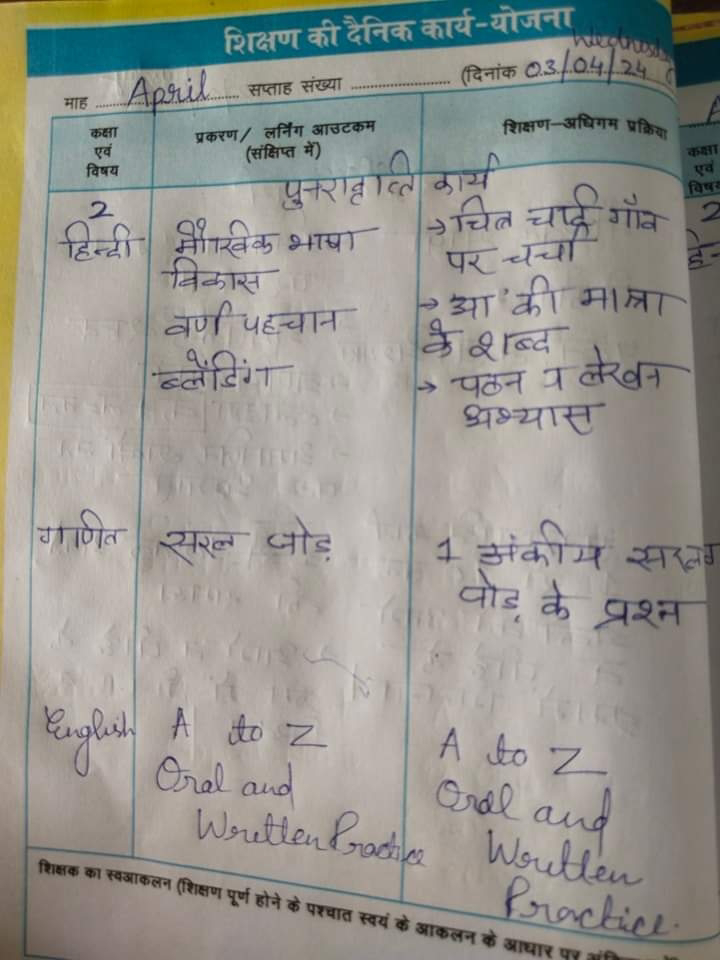 शिक्षण की दैनिक कार्य-योजना
Wednesday
माह April सप्ताह संख्या .................. (दिनांक 03/04/24
कक्षा एवं विषय
प्रकरण/ लर्निंग आउटकम (संक्षिप्त में)
शिक्षण-अधिगम प्रक्रिया
पुनरावृत्ति कार्य
2
हिन्दी
मौखिक भाषा
विकास
वर्ण पहचान
ब्लेंडिंग
→ चित्र चार्ट गाँव
पर चर्चा
→ 'आ' की मात्रा
के शब्द
→ पठन व लेखन
अभ्यास
गणित
सरल जोड़
1 अंकीय सरल
जोड़ के प्रश्न
English
A to Z
Oral and
Written Practice
A to Z
Oral and
Written
Practice.
शिक्षक का स्वआकलन (शिक्षण पूर्ण होने के पश्चात स्वयं के आकलन के आधार पर
कक्षा
एवं
विषय
2